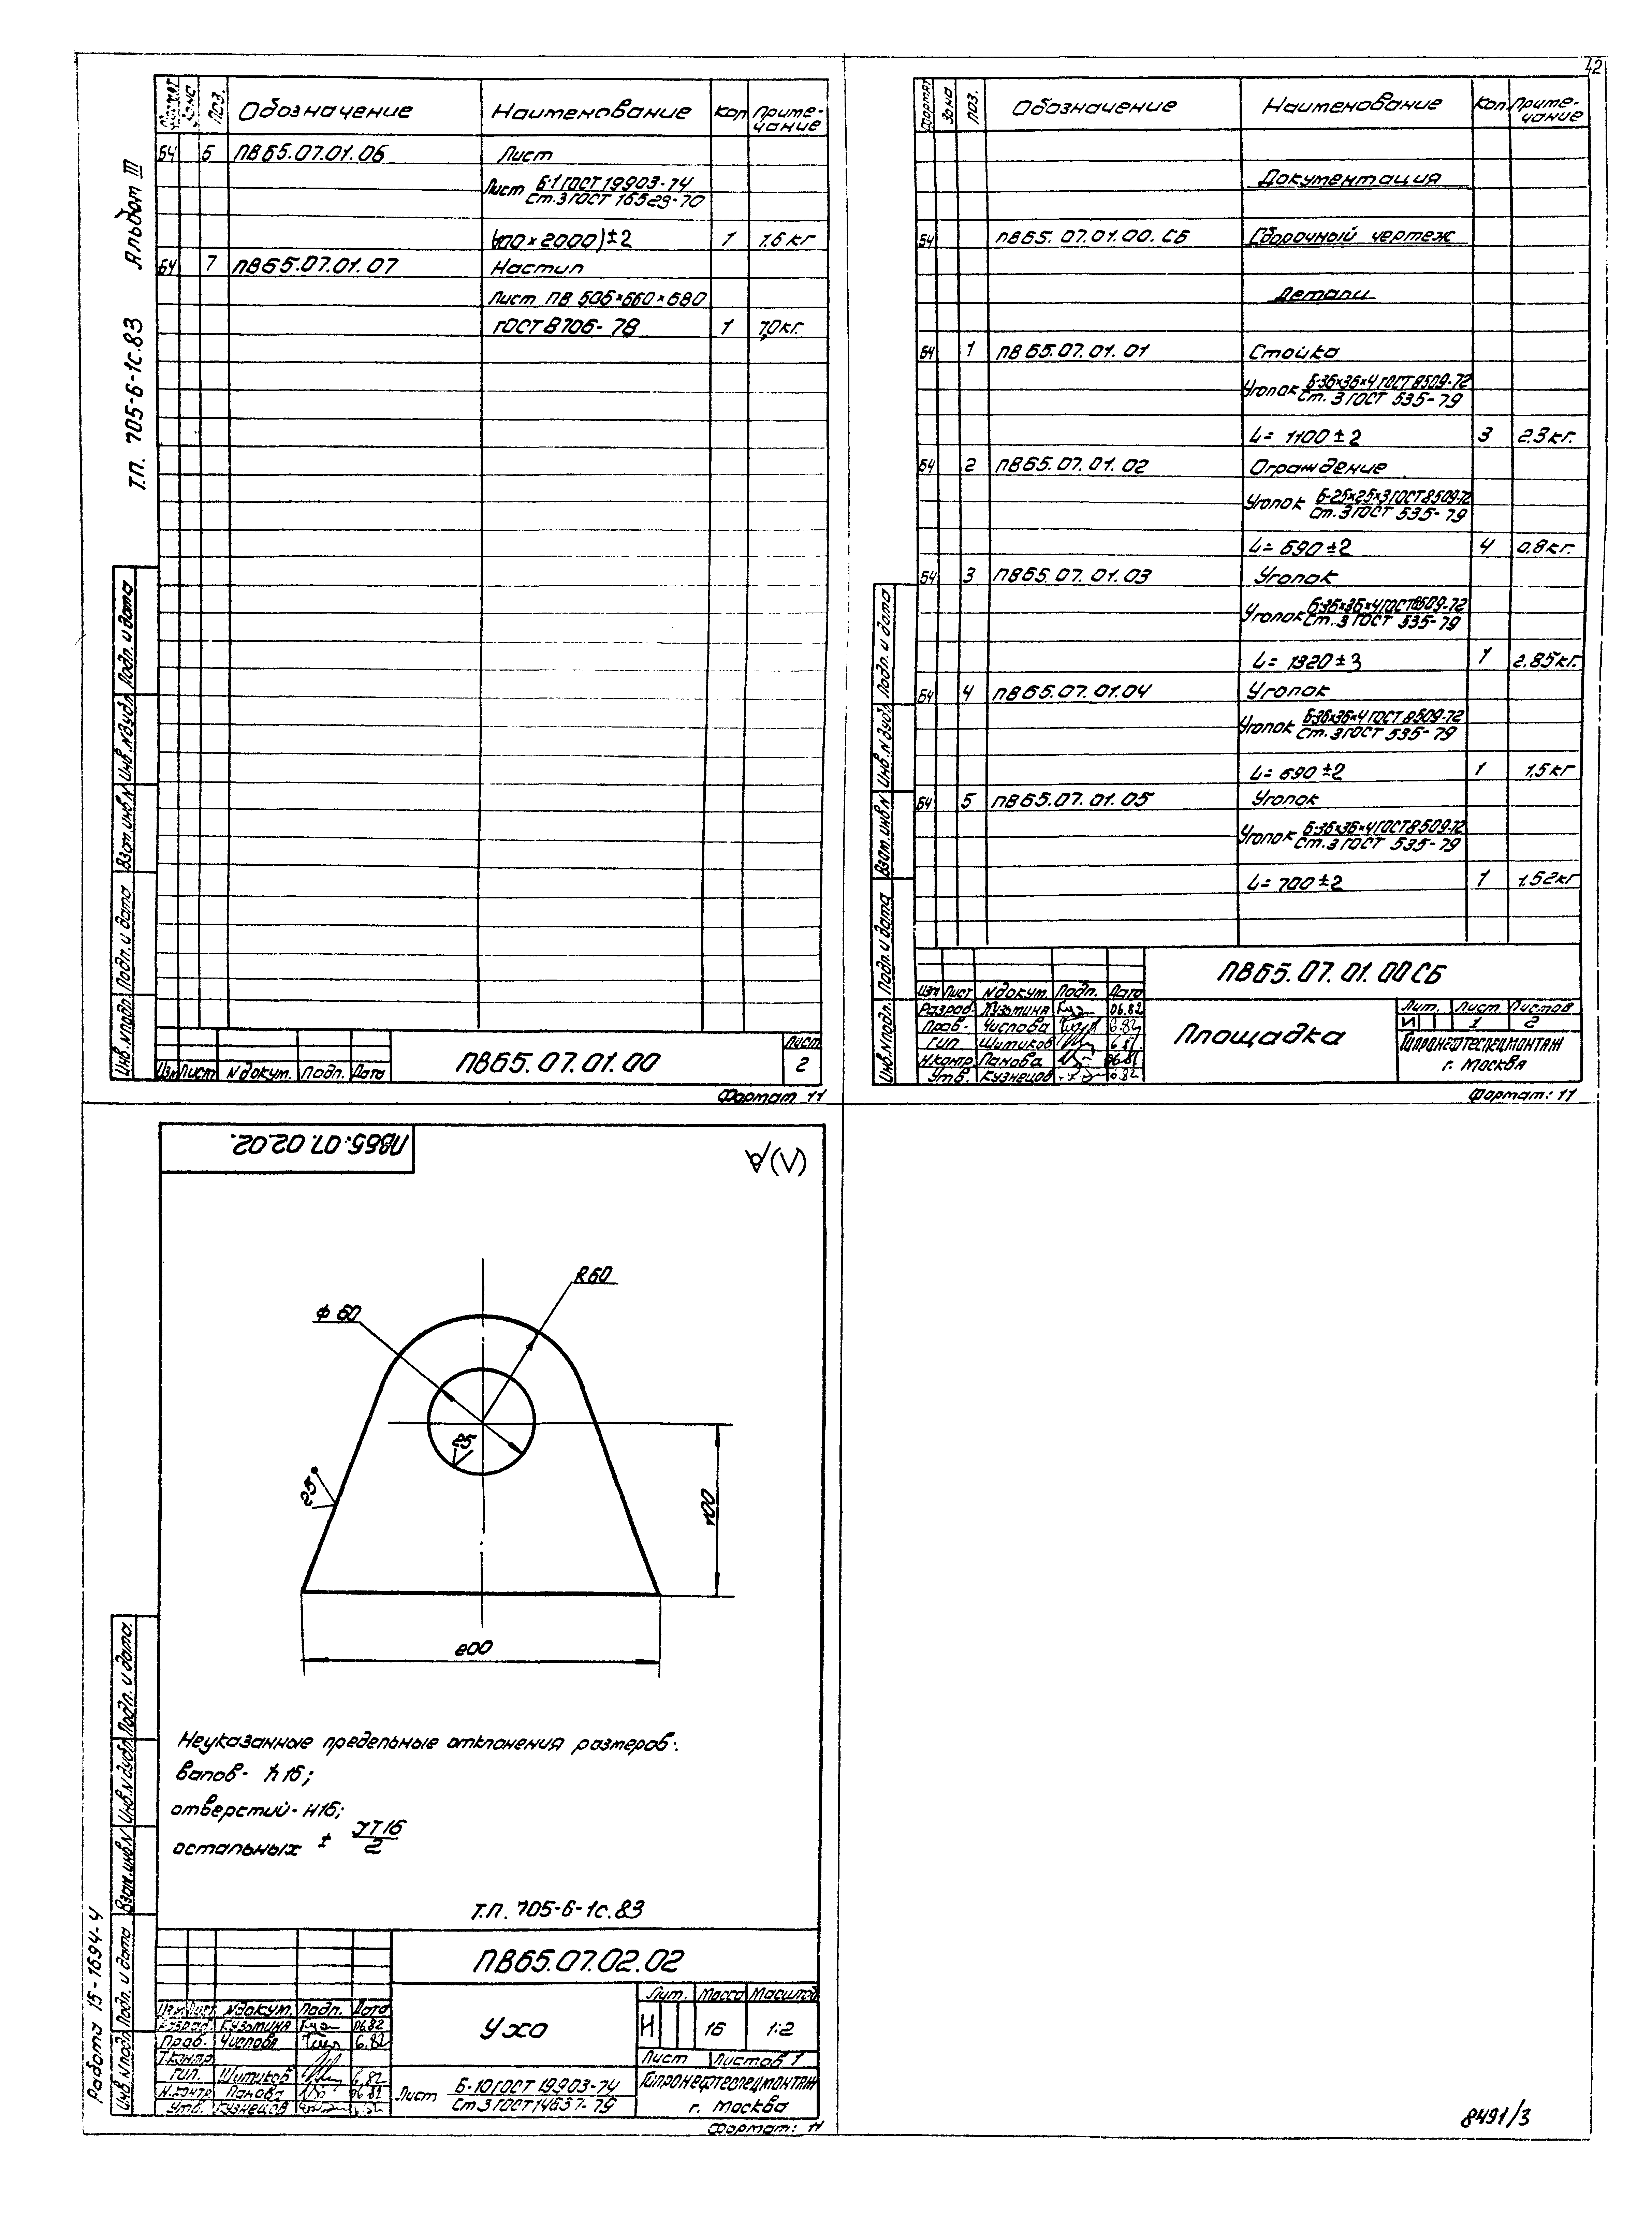 42
Альбом III
Т.П. 705-6-1с.83
Формат Зона Поз. Обозначение Наименование Кол Приме-
чание
БЧ 6 ПВ65.07.01.06 Лист
Лист Б-1 ГОСТ 19903-74
Ст.3 ГОСТ 16523-70
(100×2000)±2 1 1.6 кг
БЧ 7 ПВ65.07.01.07 Настил
Лист ПВ 506×660×680
ГОСТ 8706-78 1 7,0кг.
Инв.№подл. Подп. и дата Взам.инв.№ Инв.№дубл. Подп. и дата
Изм Лист №докум. Подп. Дата
ПВ65.07.01.00
Лист
2
Формат 11
Формат Зона Поз. Обозначение Наименование Кол. Приме-
чание
Документация
БЧ ПВ65.07.01.00.СБ Сборочный чертеж
Детали
БЧ 1 ПВ65.07.01.01 Стойка
Уголок Б-36×36×4 ГОСТ 8509-72
Ст.3 ГОСТ 535-79
L= 1100±2 3 2.3кг.
БЧ 2 ПВ65.07.01.02 Ограждение
Уголок Б-25×25×3 ГОСТ 8509-72
Ст.3 ГОСТ 535-79
L= 690±2 4 0.8кг.
БЧ 3 ПВ65.07.01.03 Уголок
Уголок Б-36×36×4 ГОСТ 8509-72
Ст.3 ГОСТ 535-79
L= 1320±3 1 2.85кг.
БЧ 4 ПВ65.07.01.04 Уголок
Уголок Б-36×36×4 ГОСТ 8509-72
Ст.3 ГОСТ 535-79
L= 690±2 1 1,5кг
БЧ 5 ПВ65.07.01.05 Уголок
Уголок Б-36×36×4 ГОСТ 8509-72
Ст.3 ГОСТ 535-79
L= 700±2 1 1,52кг
Инв.№подл. Подп. и дата Взам.инв.№ Инв.№дубл. Подп. и дата
ПВ65.07.01.00СБ
Изм Лист №докум. Подп. Дата
Разраб. Кузьмина 06.82
Пров. Числова 6.82
ГИП. Шитиков
Н.контр. Панова
Утв. Кузнецов 6.82
Площадка
Лит. Лист Листов
И 1 2
Гипронефтеспецмонтаж
г. Москва
Формат: 11
ПВ65.07.02.02.
(√)
R60
Ф 60
25
25
100
200
Неуказанные предельные отклонения размеров:
валов- h16;
отверстий- H16;
остальных ± JT16
2
Т.П. 705-6-1с.83
Работа 15-1694-4
Инв.№подл. Подп. и дата Взам.инв.№ Инв.№дубл. Подп. и дата.
ПВ65.07.02.02
Изм Лист №докум. Подп. Дата
Разраб. Кузьмина 06.82
Пров. Числова 6.82
Т.контр.
ГИП. Шитиков 6.82
Н.контр Панова 06.82
Утв. Кузнецов
Ухо
Лит. Масса Масштаб
И 16 1:2
Лист Листов 1
Лист Б-10 ГОСТ 19903-74
Ст 3 ГОСТ 14637-79
Гипронефтеспецмонтаж
г. Москва
Формат: 11
8491/3